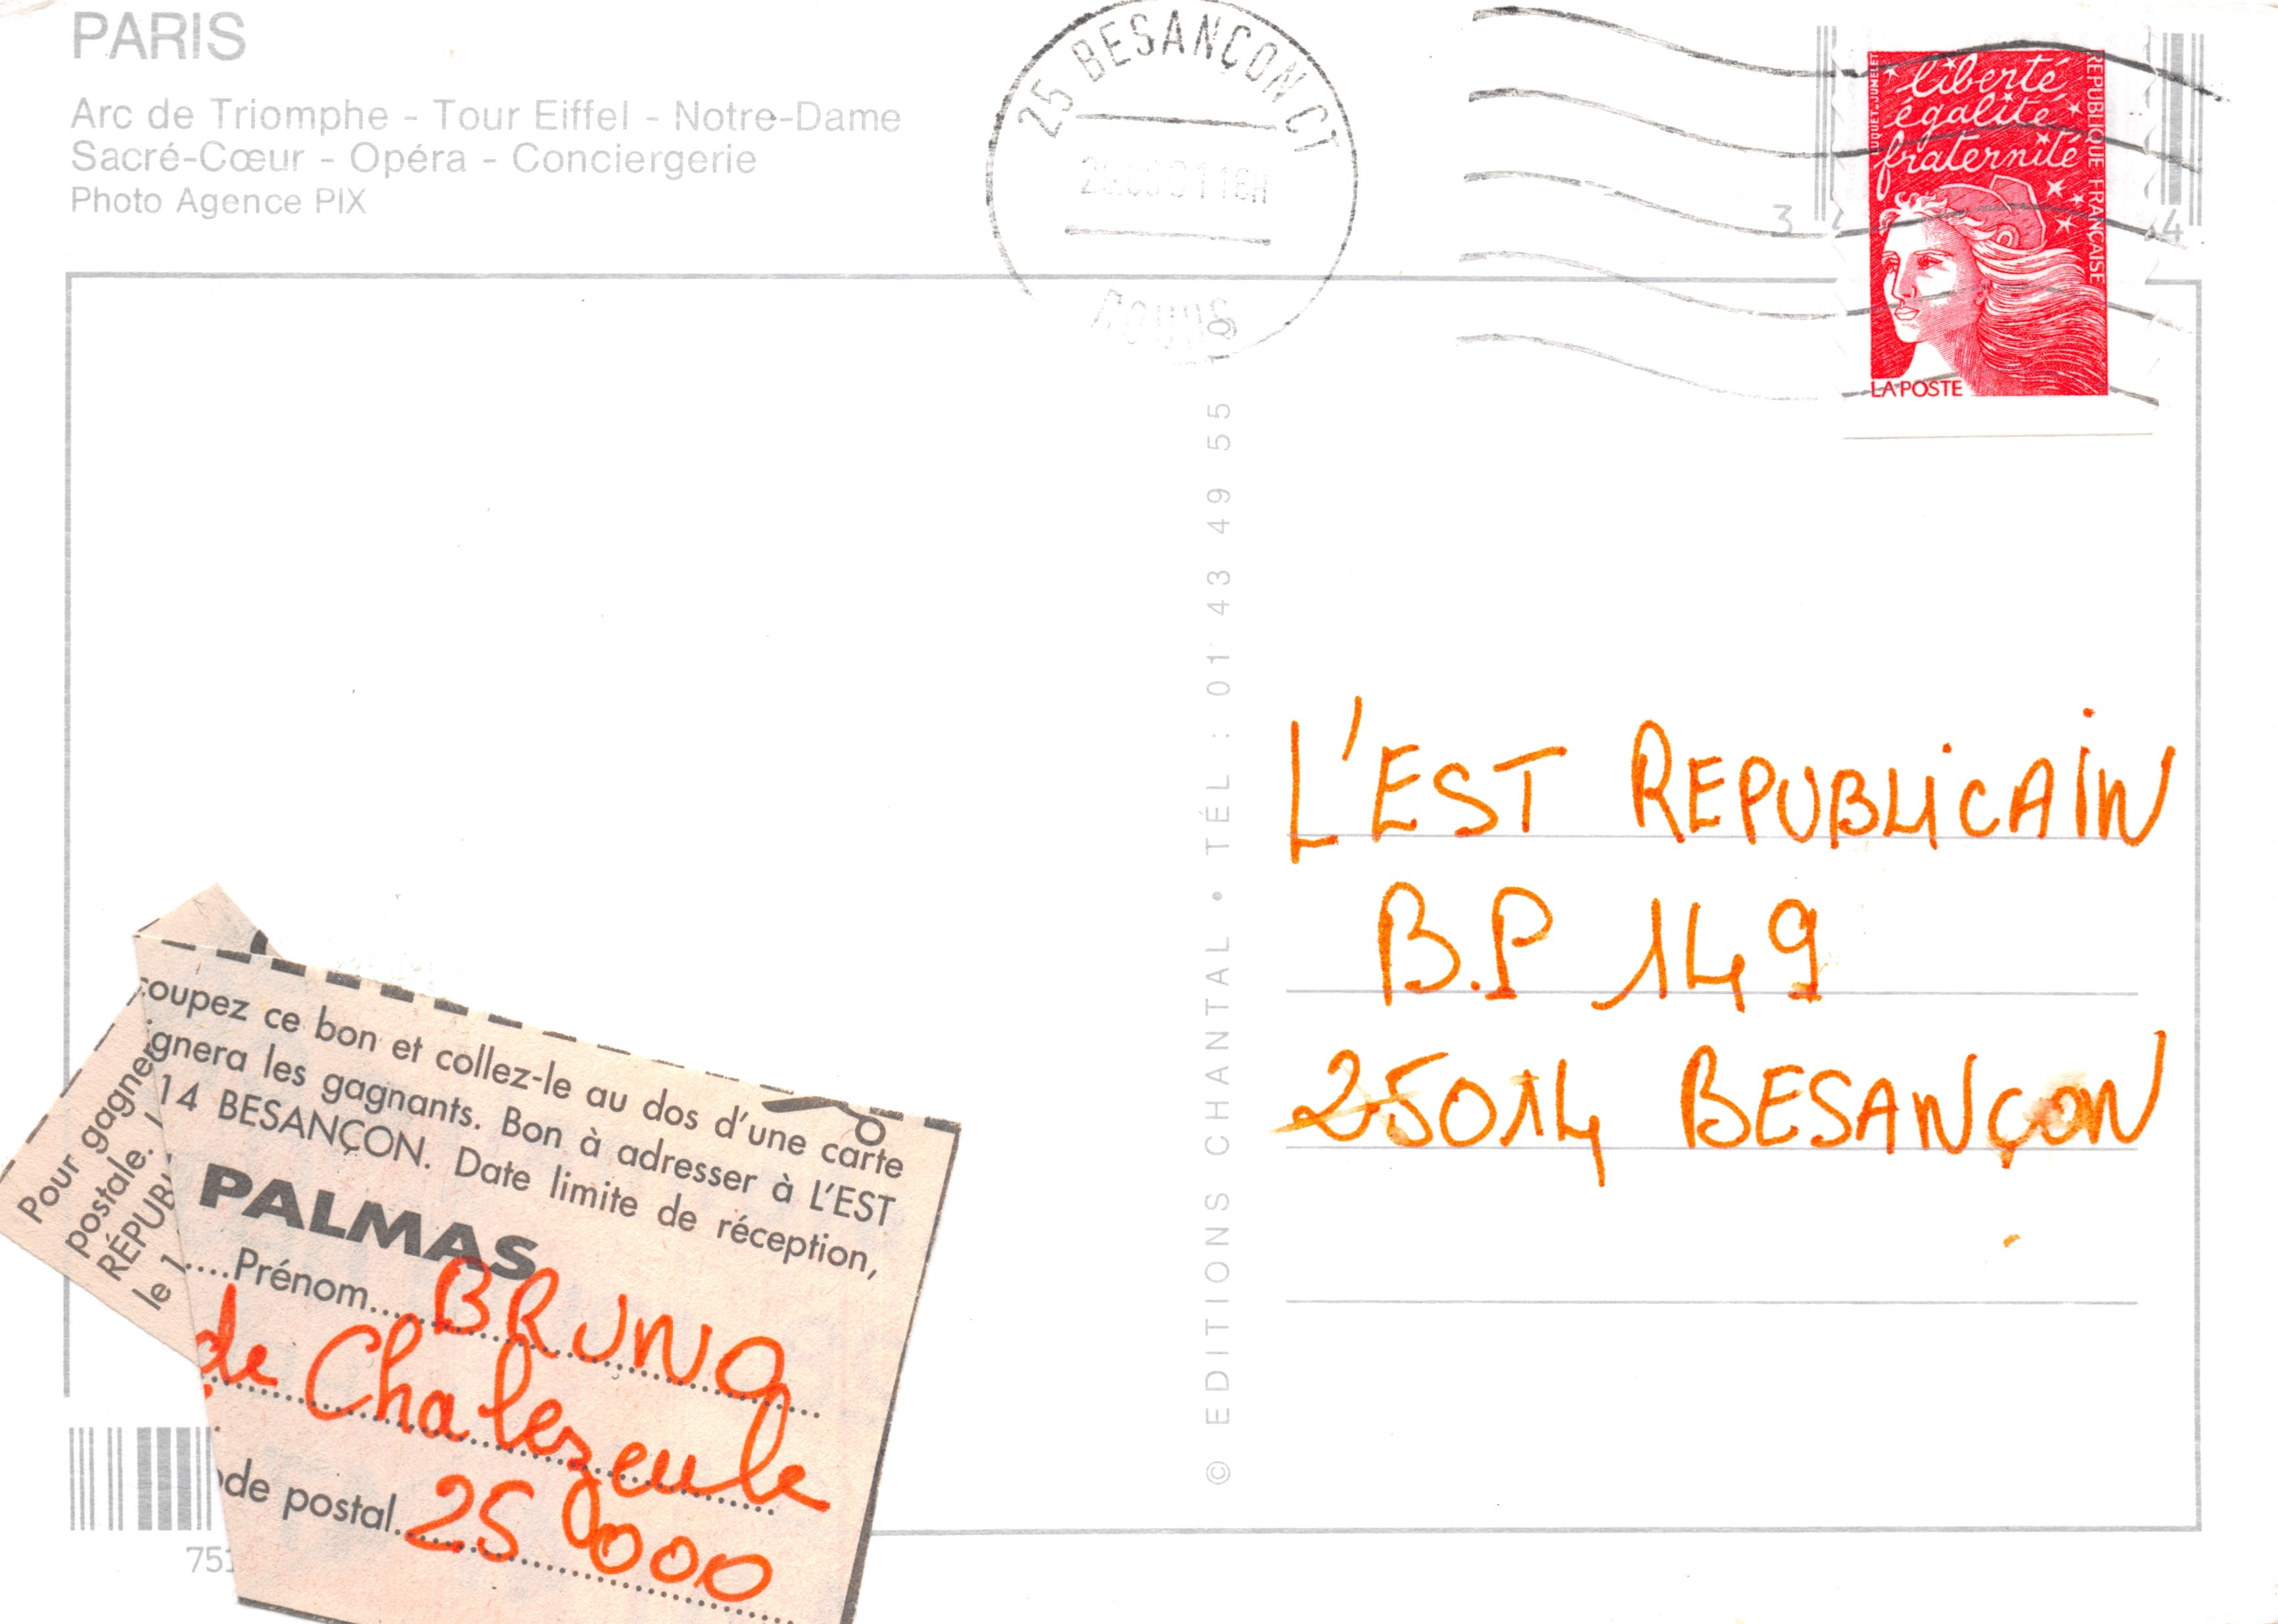 PARIS
Arc de Triomphe - Tour Eiffel - Notre-Dame
Sacré-Cœur - Opéra - Conciergerie
Photo Agence PIX
25 BESANÇON CT
DOUBS
liberté
égalité
fraternité
RÉPUBLIQUE FRANÇAISE
LUQUET.JUMELET
LA POSTE
3
4
© EDITIONS CHANTAL • TÉL : 01 43 49 55
L'EST REPUBLICAIN
B.P 149
25014 BESANÇON
Pour gagner
postale.
RÉPUBL
le 1
coupez ce bon et collez-le au dos d'une carte
gnera les gagnants. Bon à adresser à L'EST
14 BESANÇON. Date limite de réception,
PALMAS
Prénom BRUNO
de Chalezeule
ode postal 25000
751